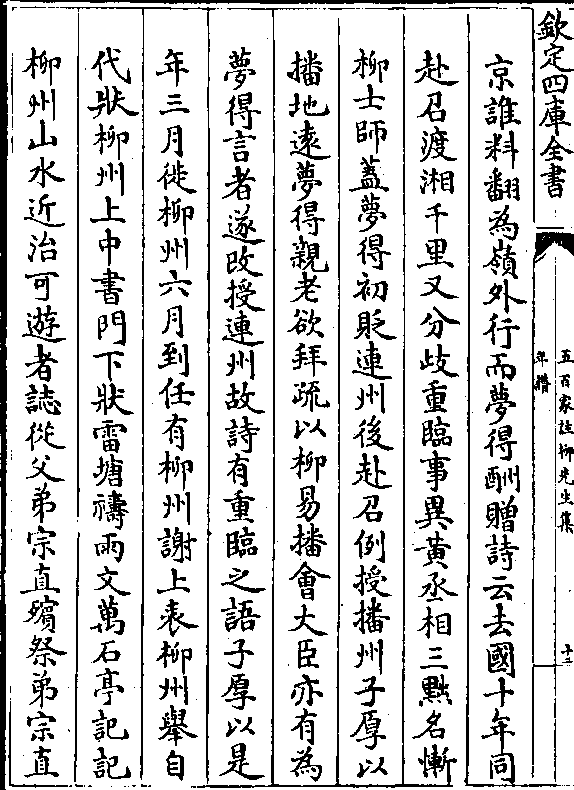 欽定四庫全書
五百家註柳先生集
年譜
十二
京誰料翻為嶺外行而夢得酬贈詩云去國十年同
赴召渡湘千里又分歧重臨事異黃丞相三黜名慚
柳士師蓋夢得初貶連州後赴召例授播州子厚以
播地遠夢得親老欲拜疏以柳易播會大臣亦有為
夢得言者遂改授連州故詩有重臨之語子厚以是
年三月徙柳州六月到任有柳州謝上表柳州舉自
代狀柳州上中書門下狀雷塘禱雨文萬石亭記記
柳州山水近治可遊者誌從父弟宗直殯祭弟宗直